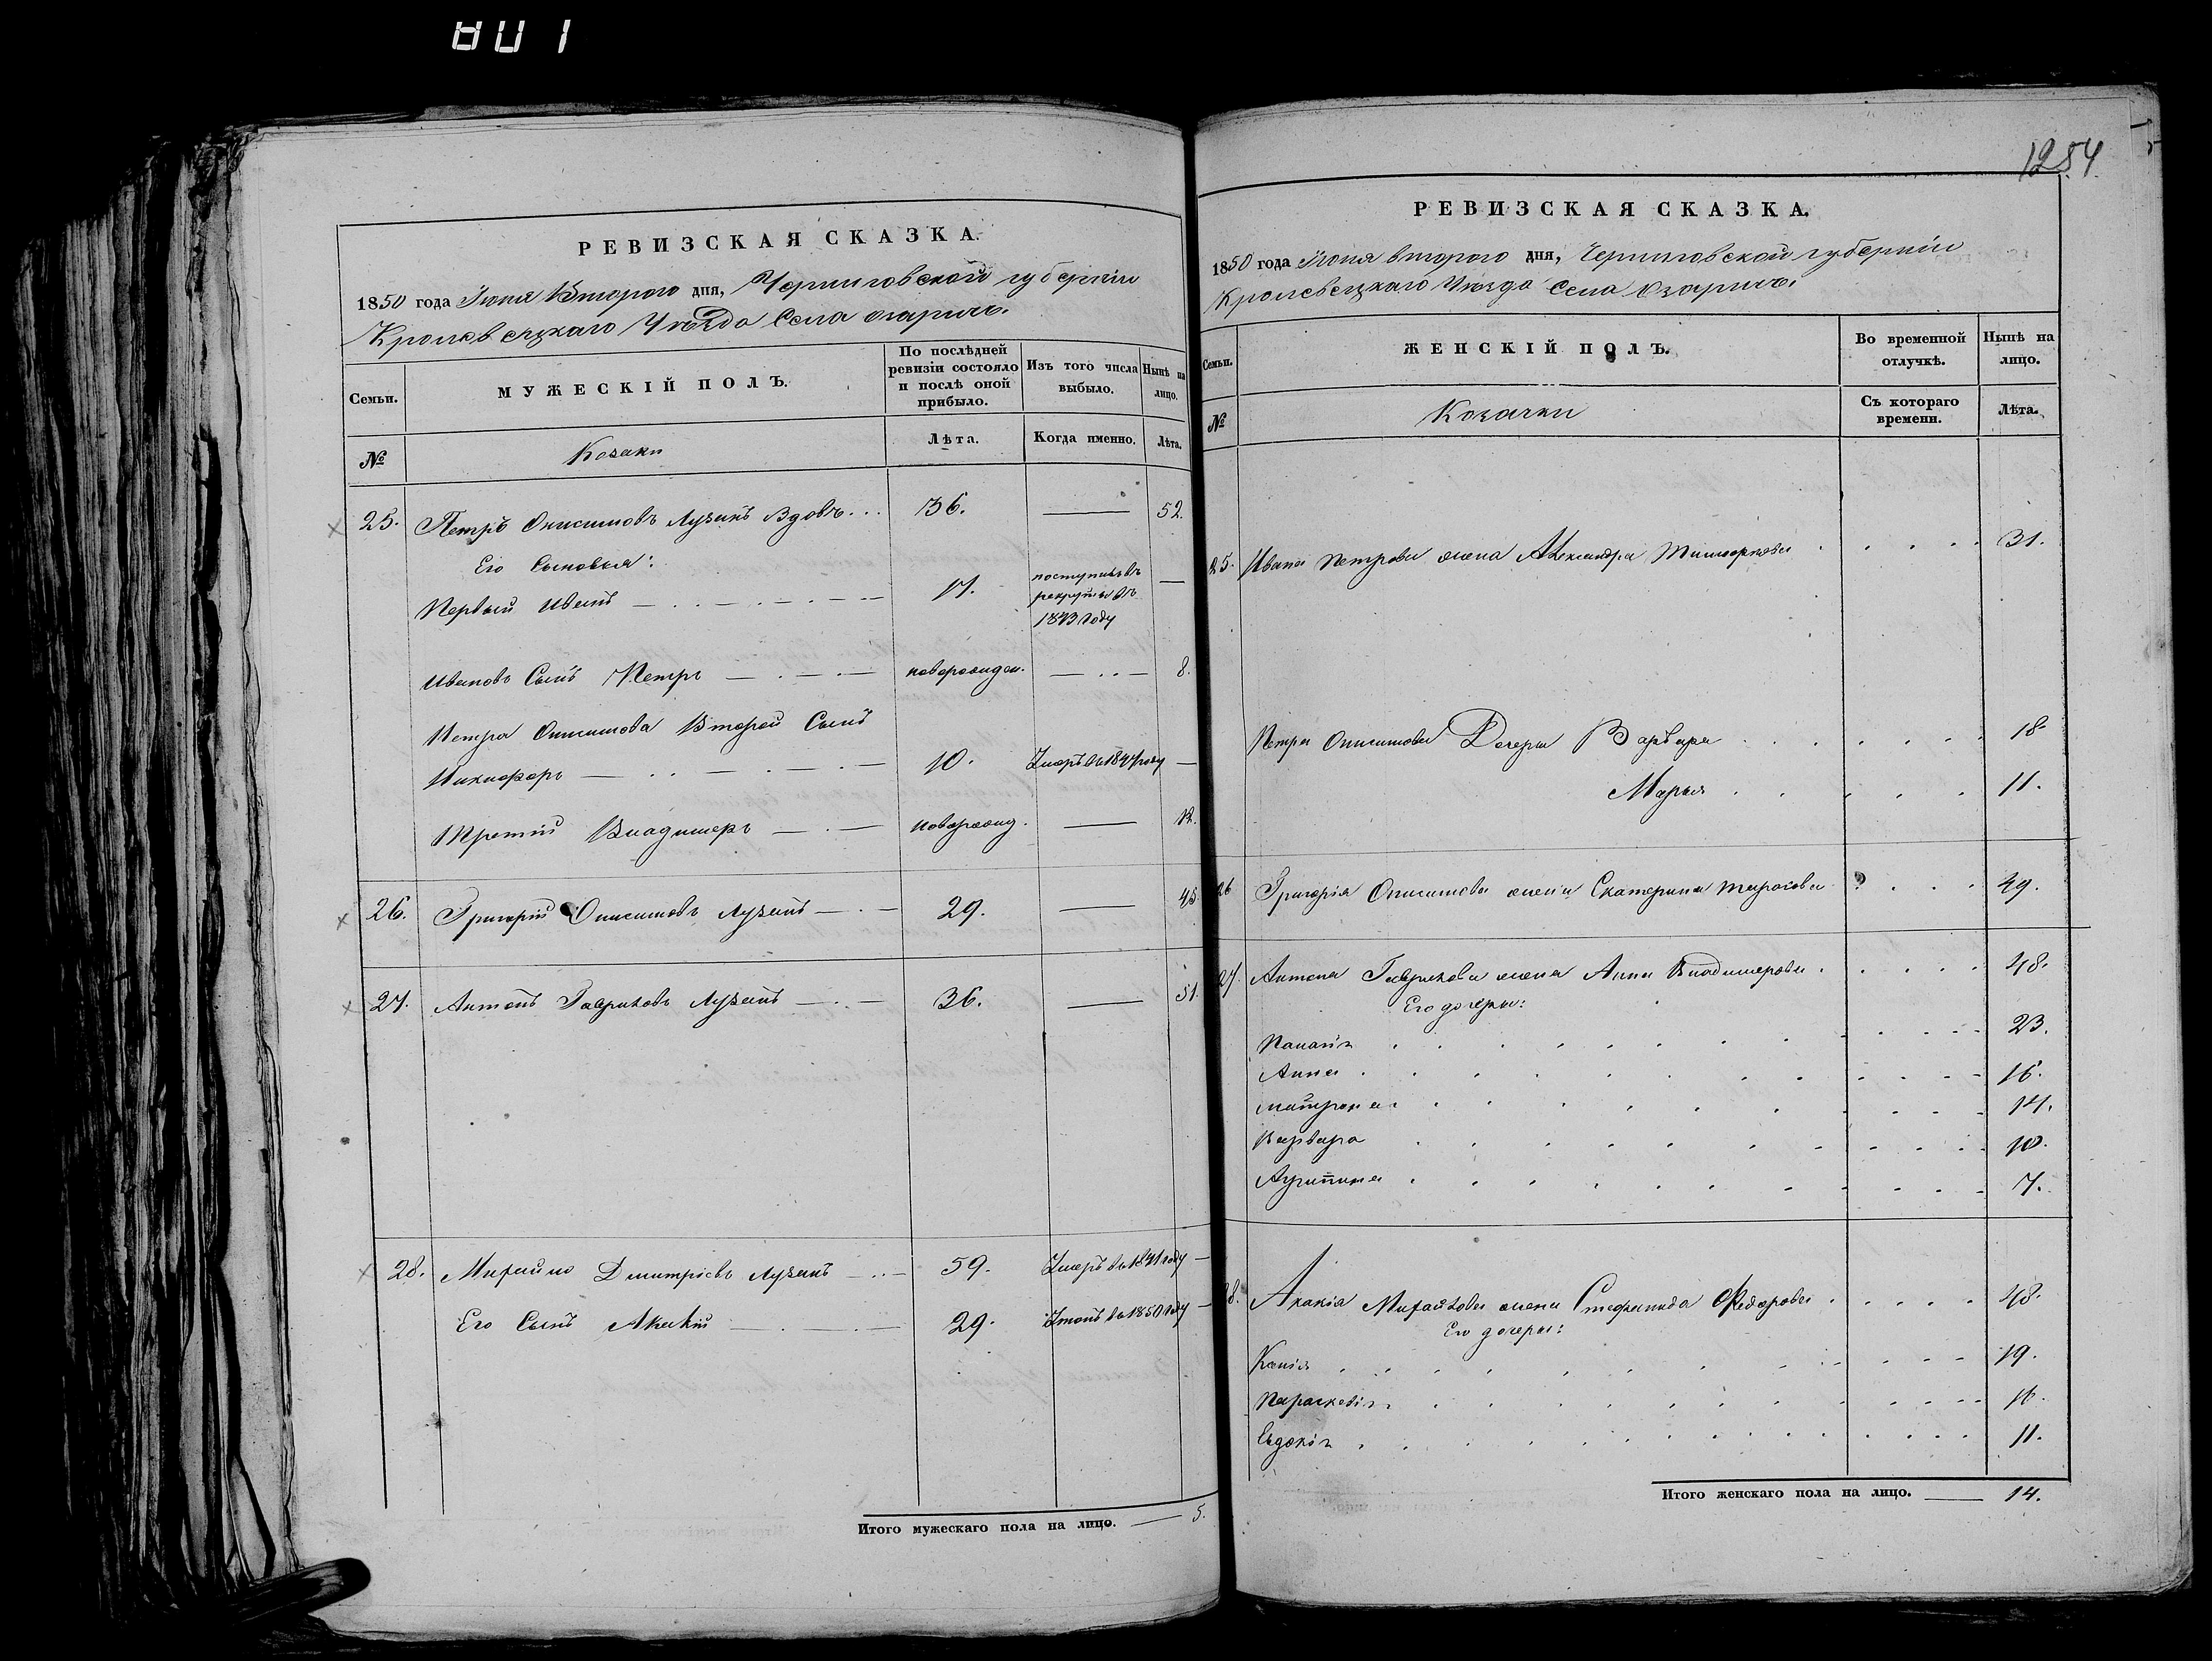 801
1254
РЕВИЗСКАЯ СКАЗКА.
1850 года Іюня Второго дня, Черниговской губерніи
Кролевецкаго Уѣзда Села озаричь.
Семьи.
МУЖЕСКІЙ ПОЛЪ.
По послѣдней ревизіи состояло и послѣ оной прибыло.
Изъ того числа выбыло.
Нынѣ на лицо.
№
Козаки
Лѣта.
Когда именно.
Лѣта.
25. Петръ Онисимовъ Лузанъ Вдовъ 36. 52.
Его Сыновья:
Первый Иванъ 17. поступилъ въ рекруты въ 1843 году
Ивановъ Сынъ Петръ новорожден. 8.
Петра Онисимова Второй Сынъ
Никифоръ 10. Умеръ въ 1844 году
Третій Владимеръ новорожд. 12.
26. Григорій Онисимовъ Лузанъ 29. 45
27. Антонъ Гавриловъ Лузанъ 36. 51.
28. Михайло Дмитріевъ Лузанъ 59. Умеръ въ 1841 году
Его Сынъ Акакій 29. въ 1850 году
Итого мужескаго пола на лицо. 5.
РЕВИЗСКАЯ СКАЗКА.
1850 года Іюня второго дня, Черниговской губерніи
Кролевецкаго Уѣзда Села Озаричь.
Семьи.
ЖЕНСКІЙ ПОЛЪ.
Во временной отлучкѣ.
Нынѣ на лицо.
№
Козачки
Съ котораго времени.
Лѣта.
25. Ивана Петрова жена Александра Тимофеева 31.
Петра Онисимова Дочери Варвара 18
Марья 11.
26 Григорія Онисимова жена Екатерина Тарасова 49.
27. Антона Гаврилова жена Анна Владимерова 48.
Его дочери:
Паланія 23.
Анна 16.
Матрона 14.
Варвара 10.
Агрипина 7.
28. Акакія Михайлова жена Стефанида Федорова 48.
Его дочери:
Ксенія 19.
Параскевія 16.
Евдокія 11.
Итого женскаго пола на лицо. 14.